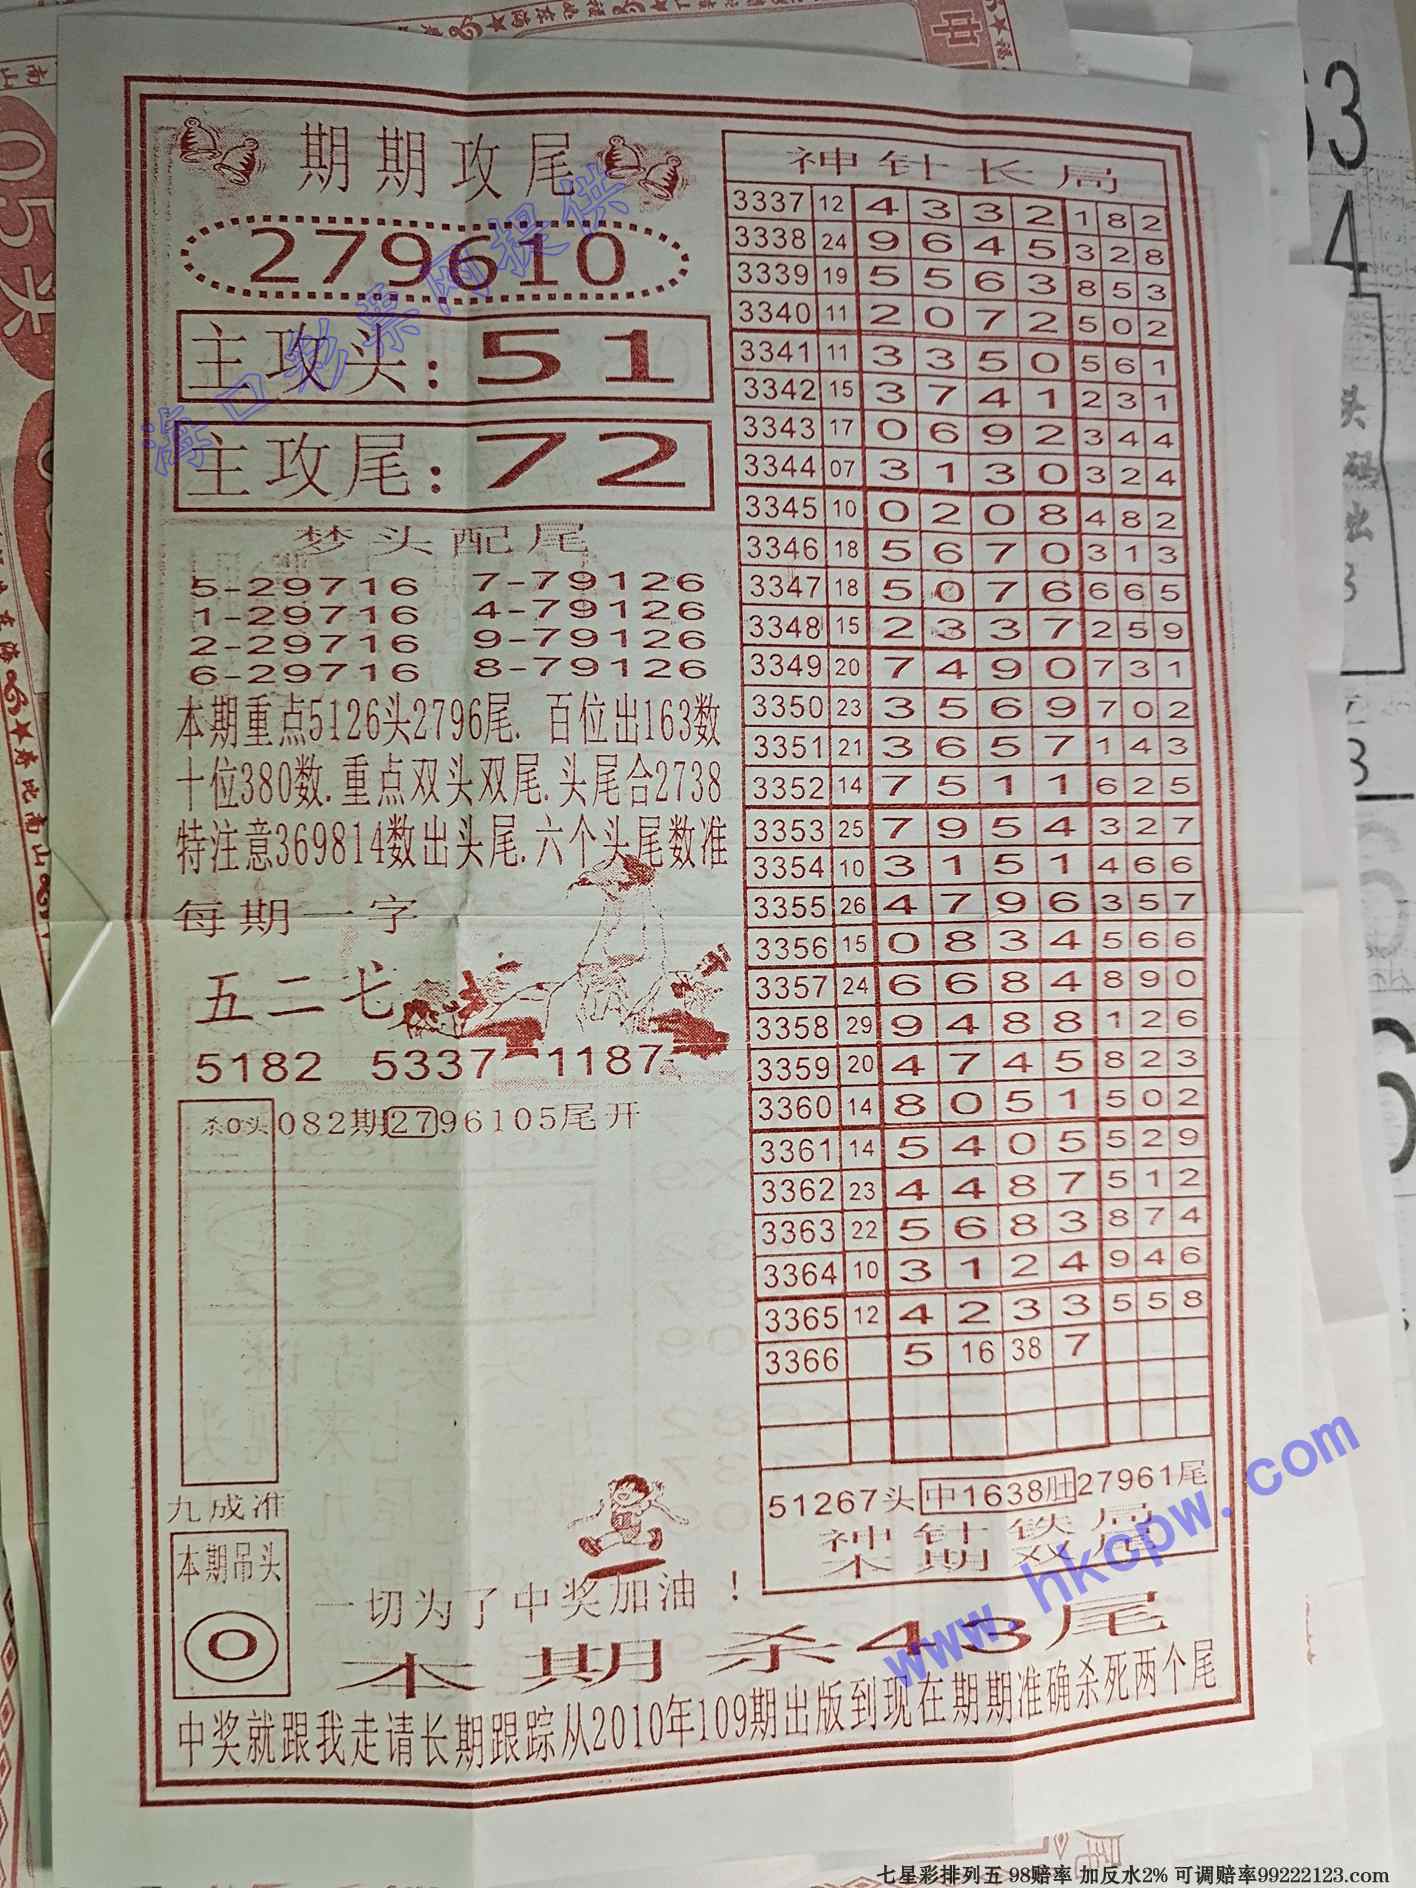 期期攻尾
279610
主攻头:51
主攻尾:72
梦头配尾
5-29716 7-79126
1-29716 4-79126
2-29716 9-79126
6-29716 8-79126
本期重点5126头2796尾. 百位出163数
十位380数.重点双头双尾.头尾合2738
特注意369814数出头尾.六个头尾数准
每期一字
五二七
5182 5337 1187
杀0头
082期2796105尾开
九成准
本期吊头
0
一切为了中奖加油！
神针长局
3337 12 4 3 3 2 1 8 2
3338 24 9 6 4 5 3 2 8
3339 19 5 5 6 3 8 5 3
3340 11 2 0 7 2 5 0 2
3341 11 3 3 5 0 5 6 1
3342 15 3 7 4 1 2 3 1
3343 17 0 6 9 2 3 4 4
3344 07 3 1 3 0 3 2 4
3345 10 0 2 0 8 4 8 2
3346 18 5 6 7 0 3 1 3
3347 18 5 0 7 6 6 6 5
3348 15 2 3 3 7 2 5 9
3349 20 7 4 9 0 7 3 1
3350 23 3 5 6 9 7 0 2
3351 21 3 6 5 7 1 4 3
3352 14 7 5 1 1 6 2 5
3353 25 7 9 5 4 3 2 7
3354 10 3 1 5 1 4 6 6
3355 26 4 7 9 6 3 5 7
3356 15 0 8 3 4 5 6 6
3357 24 6 6 8 4 8 9 0
3358 29 9 4 8 8 1 2 6
3359 20 4 7 4 5 8 2 3
3360 14 8 0 5 1 5 0 2
3361 14 5 4 0 5 5 2 9
3362 23 4 4 8 7 5 1 2
3363 22 5 6 8 3 8 7 4
3364 10 3 1 2 4 9 4 6
3365 12 4 2 3 3 5 5 8
3366 5 16 38 7
51267头中1638肚27961尾
神针铁局
本期双尾
本期杀43尾
中奖就跟我走请长期跟踪从2010年109期出版到现在期期准确杀死两个尾
海口彩票网提供
www.hkcpw.com
七星彩排列五 98赔率 加反水2% 可调赔率99222123.com